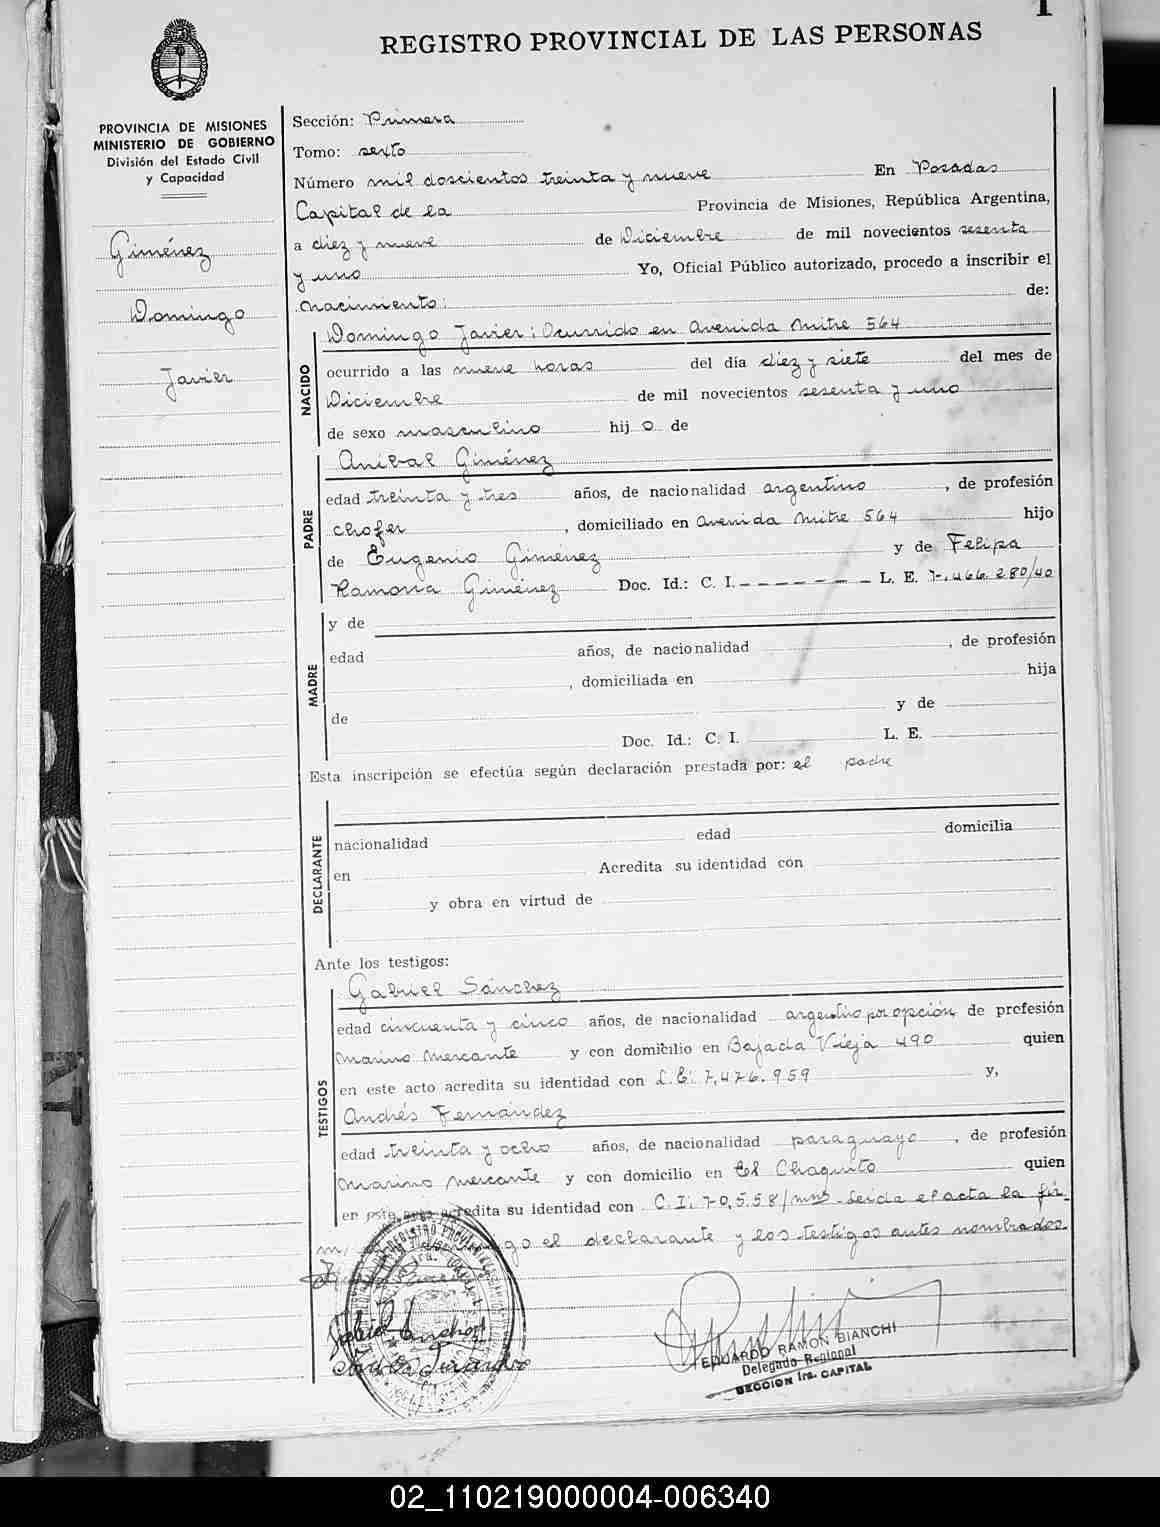 1
REGISTRO PROVINCIAL DE LAS PERSONAS
PROVINCIA DE MISIONES
MINISTERIO DE GOBIERNO
División del Estado Civil
y Capacidad
Giménez
Domingo
Javier
Sección: Primera
Tomo: sexto
Número mil doscientos treinta y nueve En Posadas
Capital de la Provincia de Misiones, República Argentina,
a diez y nueve de Diciembre de mil novecientos sesenta
y uno Yo, Oficial Público autorizado, procedo a inscribir el
nacimiento: de:
NACIDO
Domingo Javier; Ocurrido en Avenida Mitre 564
ocurrido a las nueve horas del día diez y siete del mes de
Diciembre de mil novecientos sesenta y uno
de sexo masculino hij o de
PADRE
Anibal Giménez
edad treinta y tres años, de nacionalidad argentino, de profesión
chofer, domiciliado en Avenida Mitre 564 hijo
de Eugenio Giménez y de Felipa
Ramona Giménez Doc. Id.: C. I. - - - - - - - L. E. 7.466.280/40
MADRE
y de
edad años, de nacionalidad , de profesión
, domiciliada en hija
de y de
Doc. Id.: C. I. L. E.
Esta inscripción se efectúa según declaración prestada por: el padre
DECLARANTE
nacionalidad edad domicilia
en Acredita su identidad con
y obra en virtud de
Ante los testigos:
TESTIGOS
Gabriel Sánchez
edad cincuenta y cinco años, de nacionalidad argentino por opción, de profesión
Marino Mercante y con domicilio en Bajada Vieja 490 quien
en este acto acredita su identidad con L.E. 7.476.959 y,
Andrés Fernández
edad treinta y ocho años, de nacionalidad paraguayo, de profesión
Marino Mercante y con domicilio en El Chaquito quien
en este acto acredita su identidad con C.I. 70.558/mns Leida el acta la fir-
el declarante y los testigos antes nombrados.
EDUARDO RAMON BIANCHI
Delegado Regional
SECCION 1ra. CAPITAL
02_110219000004-006340